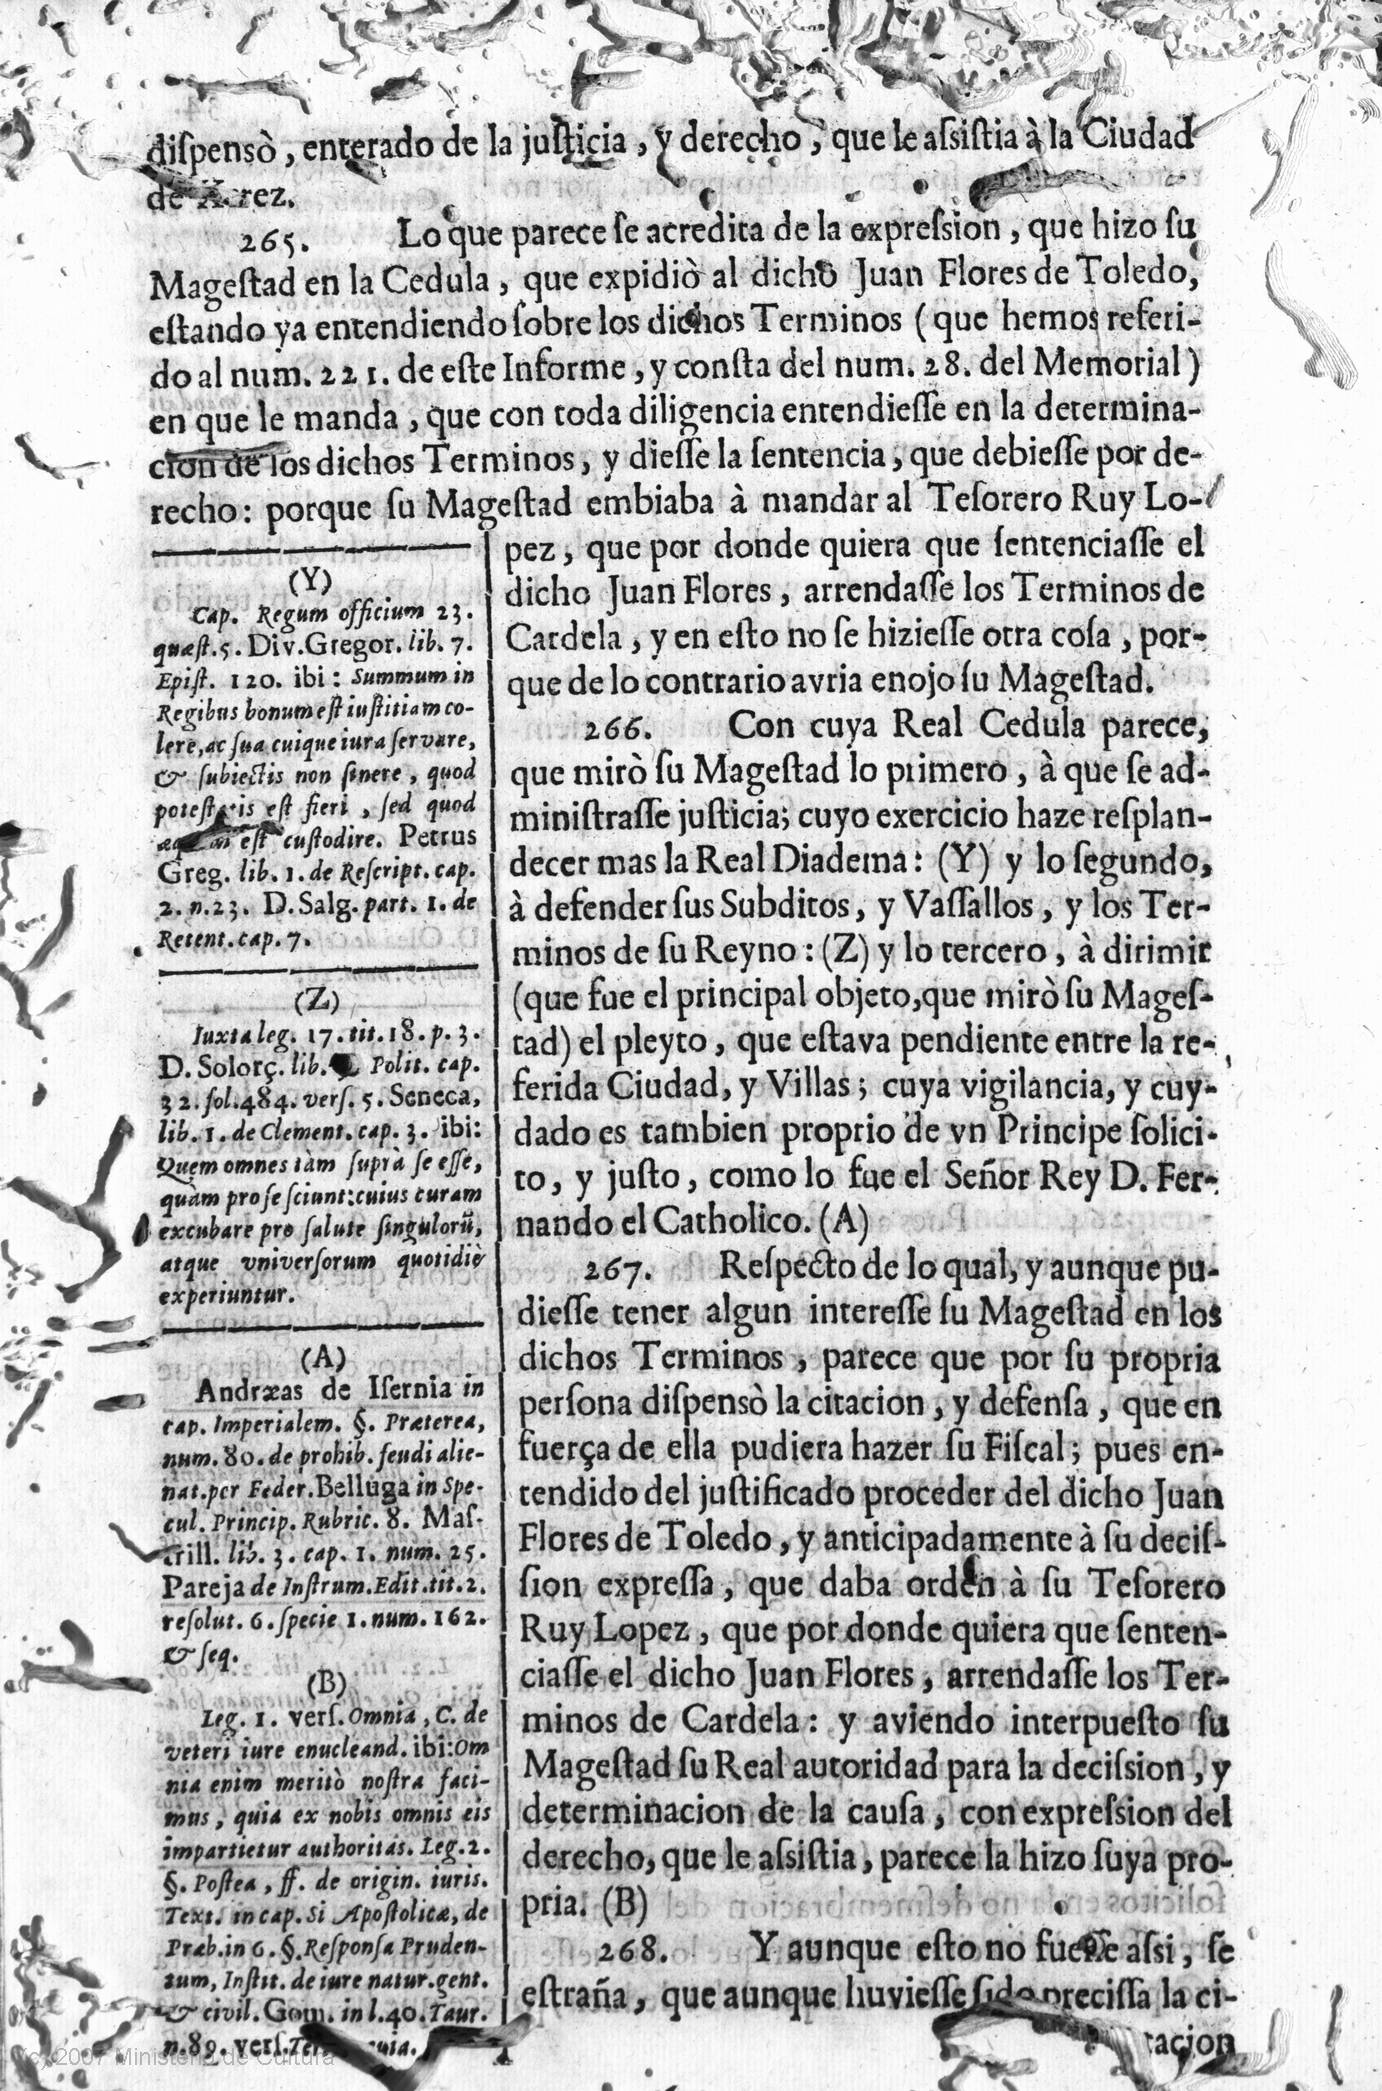 diſpensò, enterado de la juſticia, y derecho, que le aſsiſtia à la Ciudad
de Xerez.
265. Lo que parece ſe acredita de la expreſsion, que hizo ſu
Mageſtad en la Cedula, que expidiò al dicho Juan Flores de Toledo,
eſtando ya entendiendo ſobre los dichos Terminos (que hemos referi-
do al num. 221. de eſte Informe, y conſta del num. 28. del Memorial)
en que le manda, que con toda diligencia entendieſſe en la determina-
cion de los dichos Terminos, y dieſſe la ſentencia, que debieſſe por de-
recho: porque ſu Mageſtad embiaba à mandar al Teſorero Ruy Lo-
pez, que por donde quiera que ſentenciaſſe el
dicho Juan Flores, arrendaſſe los Terminos de
Cardela, y en eſto no ſe hizieſſe otra coſa, por-
que de lo contrario avria enojo ſu Mageſtad.
266. Con cuya Real Cedula parece,
que mirò ſu Mageſtad lo primero, à que ſe ad-
miniſtraſſe juſticia; cuyo exercicio haze reſplan-
decer mas la Real Diadema: (Y) y lo ſegundo,
à defender ſus Subditos, y Vaſſallos, y los Ter-
minos de ſu Reyno: (Z) y lo tercero, à dirimir
(que fue el principal objeto, que mirò ſu Mageſ-
tad) el pleyto, que eſtava pendiente entre la re-
ferida Ciudad, y Villas; cuya vigilancia, y cuy-
dado es tambien proprio de vn Principe ſolici-
to, y juſto, como lo fue el Señor Rey D. Fer-
nando el Catholico. (A)
267. Reſpecto de lo qual, y aunque pu-
dieſſe tener algun intereſſe ſu Mageſtad en los
dichos Terminos, parece que por ſu propria
perſona diſpensò la citacion, y defenſa, que en
fuerça de ella pudiera hazer ſu Fiſcal; pues en-
tendido del juſtificado proceder del dicho Juan
Flores de Toledo, y anticipadamente à ſu deciſ-
ſion expreſſa, que daba orden à ſu Teſorero
Ruy Lopez, que por donde quiera que ſenten-
ciaſſe el dicho Juan Flores, arrendaſſe los Ter-
minos de Cardela: y aviendo interpueſto ſu
Mageſtad ſu Real autoridad para la deciſsion, y
determinacion de la cauſa, con expreſsion del
derecho, que le aſsiſtia, parece la hizo ſuya pro-
pria. (B)
268. Y aunque eſto no fueſſe aſsi, ſe
eſtraña, que aunque huvieſſe ſido preciſſa la ci-
tacion
(Y)
Cap. Regum officium 23.
quæſt. 5. Div. Gregor. lib. 7.
Epiſt. 120. ibi: Summum in
Regibus bonum eſt iuſtitiam co-
lere, ac ſua cuique iura ſervare,
& ſubiectis non ſinere, quod
poteſtatis eſt fieri, ſed quod
eſt cuſtodire. Petrus
Greg. lib. 1. de Reſcript. cap.
2. n. 23. D. Salg. part. 1. de
Retent. cap. 7.
(Z)
Iuxta leg. 17. tit. 18. p. 3.
D. Solorç. lib. Polit. cap.
32. fol. 484. verſ. 5. Seneca,
lib. 1. de Clement. cap. 3. ibi:
Quem omnes tàm ſuprà ſe eſſe,
quàm pro ſe ſciunt: cuius curam
excubare pro ſalute ſingulorũ,
atque vniverſorum quotidiè
experiuntur.
(A)
Andræas de Iſernia in
cap. Imperialem. §. Præterea,
num. 80. de prohib. feudi alie-
nat. per Feder. Belluga in Spe-
cul. Princip. Rubric. 8. Maſ-
trill. lib. 3. cap. 1. num. 25.
Pareja de Inſtrum. Edit. tit. 2.
reſolut. 6. ſpecie 1. num. 162.
& ſeq.
(B)
Leg. 1. verſ. Omnia, C. de
veteri iure enucleand. ibi: Om
nia enim meritò noſtra faci-
mus, quia ex nobis omnis eis
impartietur authoritas. Leg. 2.
§. Poſtea, ff. de origin. iuris.
Text. in cap. Si Apoſtolicæ, de
Præb. in 6. §. Reſponſa Pruden-
tum, Inſtit. de iure natur. gent.
& civil. Gom. in l. 40. Taur.
n. 89. verſ.
(c) 2007 Ministerio de Cultura